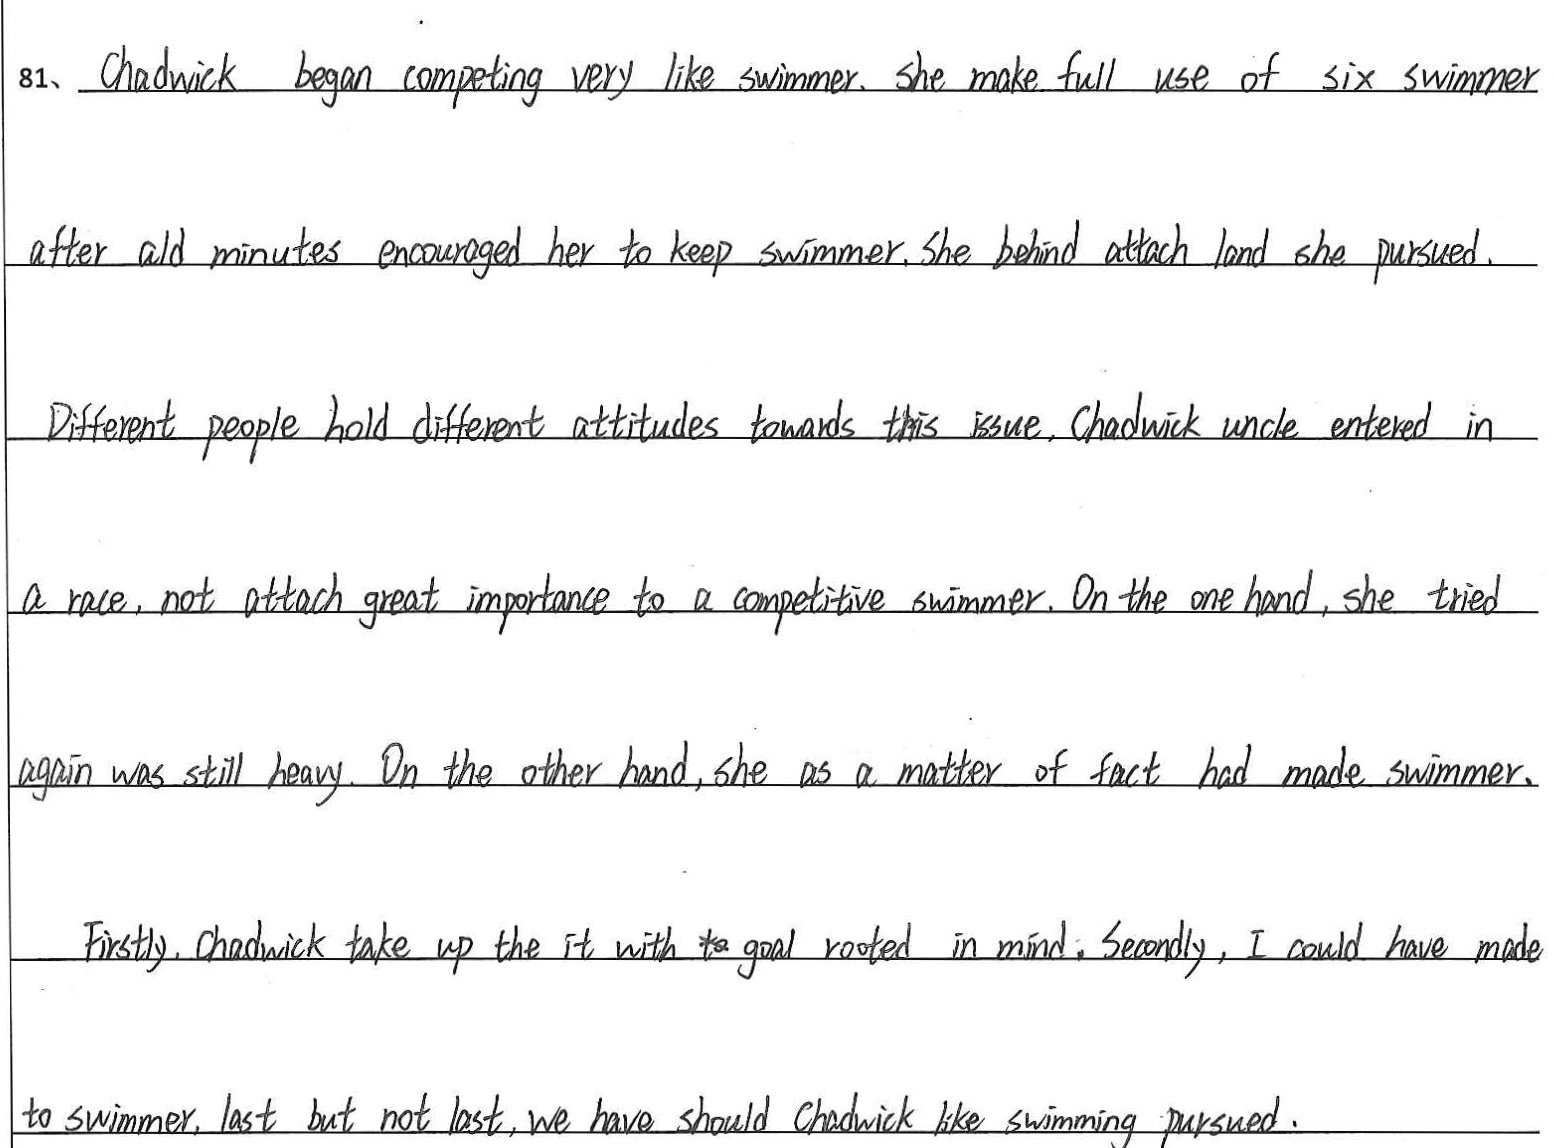 81、 Chadwick began competing very like swimmer. She make full use of six swimmer
after ald minutes encouraged her to keep swimmer. She behind attach land she pursued.
Different people hold different attitudes towards this issue. Chadwick uncle entered in
a race, not attach great importance to a competitive swimmer. On the one hand, she tried
again was still heavy. On the other hand, she as a matter of fact had made swimmer.
Firstly. Chadwick take up the it with to goal rooted in mind. Secondly, I could have made
to swimmer. last but not last, we have should Chadwick like swimming pursued.